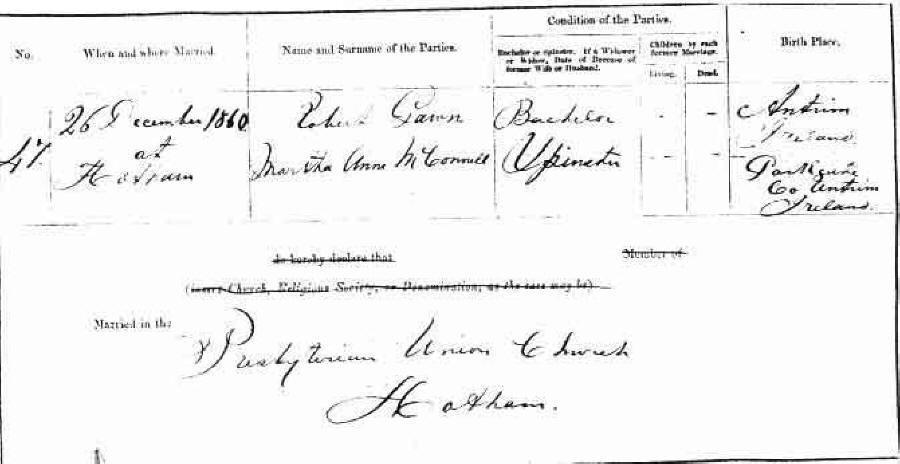 Condition of the Parties.
No.
When and where Married.
Name and Surname of the Parties.
Bachelor or Spinster. If a Widower
or Widow, Date of Decease of
former Wife or Husband.
Children by each
former Marriage.
Living.
Dead.
Birth Place.
47
26 December 1860
at
Hotham
Robert Gawn
Martha Anne McConnell
Bachelor
Spinster
- -
- -
Antrim
Ireland
Co Antrim
Ireland.
do hereby declare that
Member of
(insert Church, Religious Society, or Denomination, as the case may be)
Married in the
Presbyterian Union Church
Hotham.